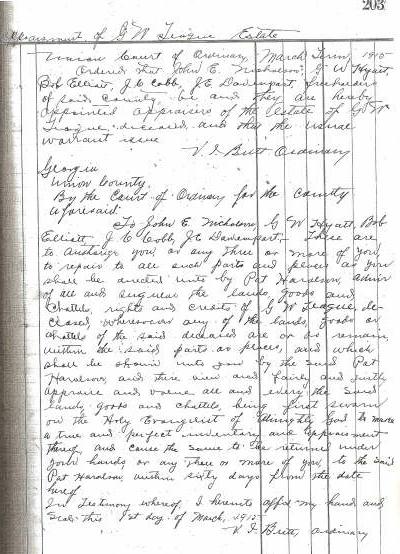 203
Appraisment of G W League Estate
Union Court of Ordinary, March Term, 1915
Ordered that John E. Nicholson, G W Hyatt,
Bob Elliott, J C Cobb, J E Davenport, freeholders
of said County be and they are hereby
appointed appraisers of the estate of G W
League, diseased, and that the usual
warrant issue
V. I. Britt Ordinary
Georgia
Union County.
By the Court of Ordinary for the county
aforesaid.
To John E. Nicholson, G W Hyatt, Bob
Elliott, J C Cobb, J E Davenport, These are
to authorize you or any three or more of you
to repair to all such parts and places as you
shall be directed unto by Pat Haralson, admin
of all and singular the lands, goods and
chattels, rights and credits of G W League, de-
ceased, wheresoever any of the lands, goods or
chattels of the said deceased are or do remain
within the said parts or places, and which
shall be shown unto you by the said Pat
Haralson, and there view and fairly and justly
appraise and value all and every the said
lands, goods and chattels, being first sworn
on the Holy Evangelist of Almighty God to make
a true and perfect inventory and appraisment
thereof, and cause the same to be returned under
your hands or any three or more of you, to the said
Pat Haralson within sixty days from the date
hereof
In Testimony whereof, I hereunto affix my hand and
seal this 1st day of March, 1915
V. I. Britt, ordinary